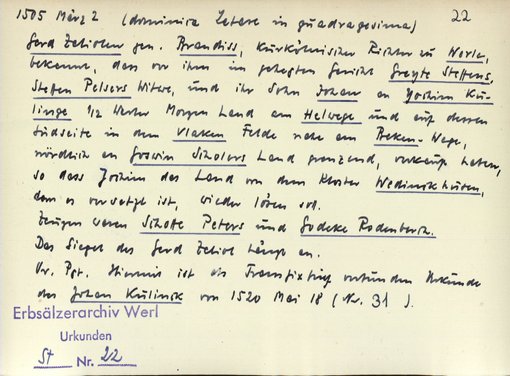 1505 März 2 (dominica Letare in quadragesima) 22
Gerd Zeliolen gen. Brandiss, kurkölnischer Richter zu Werle,
bekennt, dass vor ihm im gehegten Gericht Greyte Steffens,
Steffen Pelsers Witwe, und ihr Sohn Johan an Jochim Kü-
linge 1/2 Werler Morgen Land am Hellwege und auf dessen
Südseite in dem Vlaken Felde nahe am Beken-Wege,
nördlich an Goswin Scholers Land grenzend, verkauft haben,
so dass Jochim das Land von dem Kloster Wedinckhusen,
dem es versetzt ist, wieder lösen soll.
Zeugen waren Schotte Peters und Godeke Rodenberch.
Das Siegel des Gerd Zeliol hängt an.
Or. Pgt. Hiermit ist als Transfix verbunden Urkunde
des Johan Külinck von 1520 Mai 18 (Nr. 31).
Erbsälzerarchiv Werl
Urkunden
St Nr. 22